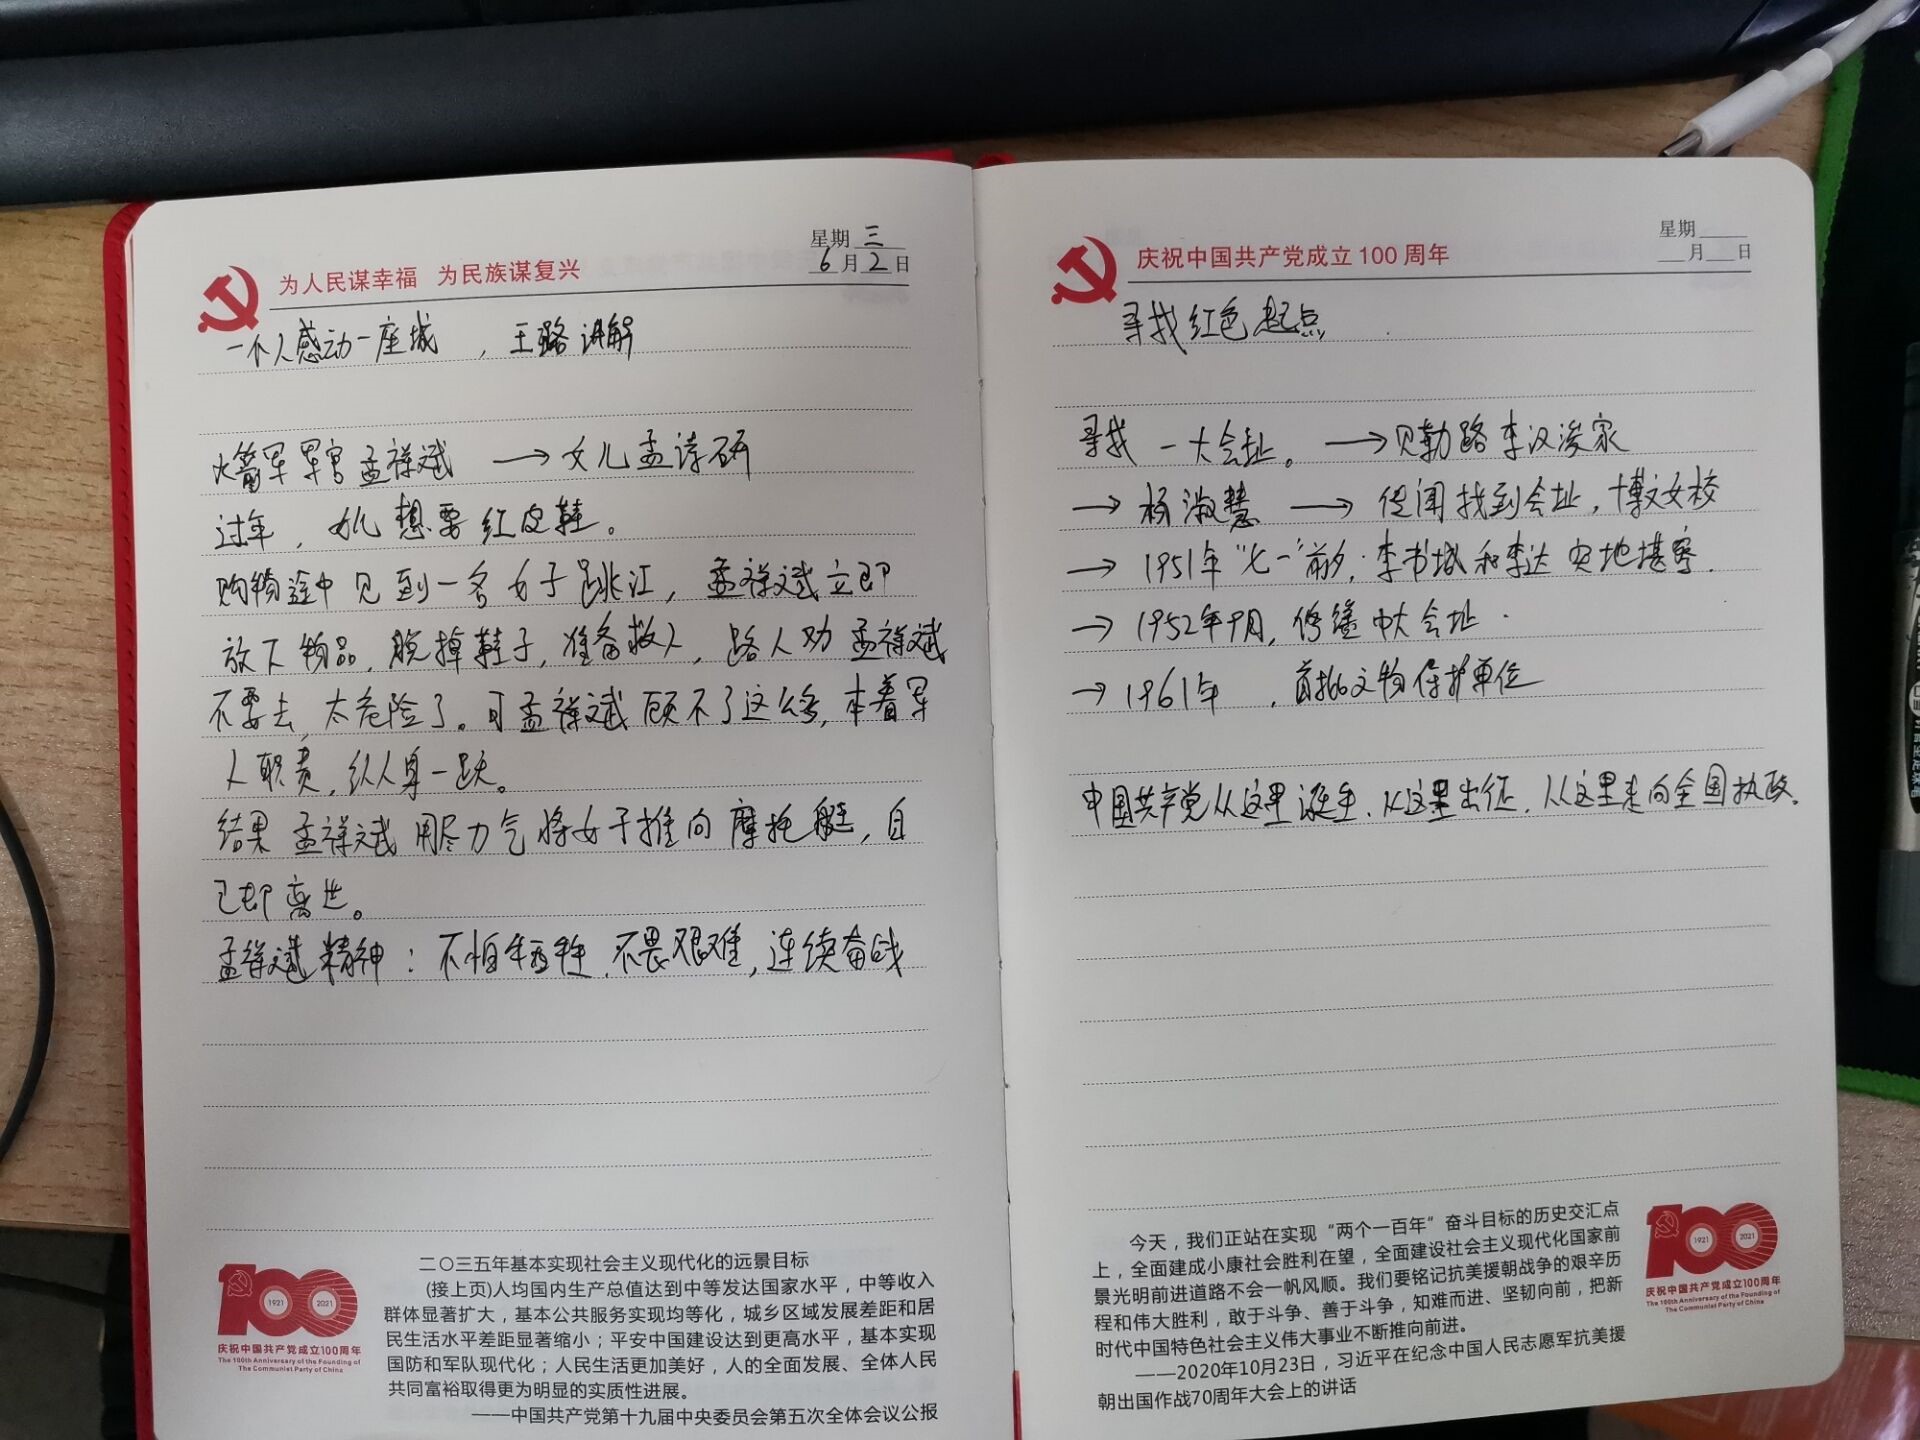 为人民谋幸福 为民族谋复兴
星期 三
6月2日
一个人感动一座城 ，王璐讲解
火箭军军官孟祥斌 → 女儿孟诗研
过年，女儿想要红皮鞋。
购物途中见到一名女子跳江，孟祥斌立即
放下物品，脱掉鞋子，准备救人，路人劝孟祥斌
不要去，太危险了。可孟祥斌顾不了这么多，本着军
人职责，纵身一跃。
结果孟祥斌用尽力气将女子推向摩托艇，自
己却离世。
孟祥斌精神：不怕牺牲，不畏艰难，连续奋战
二〇三五年基本实现社会主义现代化的远景目标
(接上页)人均国内生产总值达到中等发达国家水平，中等收入
群体显著扩大，基本公共服务实现均等化，城乡区域发展差距和居
民生活水平差距显著缩小；平安中国建设达到更高水平，基本实现
国防和军队现代化；人民生活更加美好，人的全面发展、全体人民
共同富裕取得更为明显的实质性进展。
——中国共产党第十九届中央委员会第五次全体会议公报
100
1921 2021
庆祝中国共产党成立100周年
The 100th Anniversary of the Founding of
The Communist Party of China
庆祝中国共产党成立100周年
星期
月 日
寻找红色起点
寻找一大会址。→贝勒路李汉俊家
→ 杨淑慧 → 传闻找到会址，博文女校
→ 1951年“七一”前夕，李书城和李达实地堪察.
→ 1952年9月，修缮中大会址.
→ 1961年 ，首批文物保护单位
中国共产党从这里诞生，从这里出征，从这里走向全国执政。
今天，我们正站在实现“两个一百年”奋斗目标的历史交汇点
上，全面建成小康社会胜利在望，全面建设社会主义现代化国家前
景光明前进道路不会一帆风顺。我们要铭记抗美援朝战争的艰辛历
程和伟大胜利，敢于斗争、善于斗争，知难而进、坚韧向前，把新
时代中国特色社会主义伟大事业不断推向前进。
——2020年10月23日，习近平在纪念中国人民志愿军抗美援
朝出国作战70周年大会上的讲话
100
1921 2021
庆祝中国共产党成立100周年
The 100th Anniversary of the Founding of
The Communist Party of China